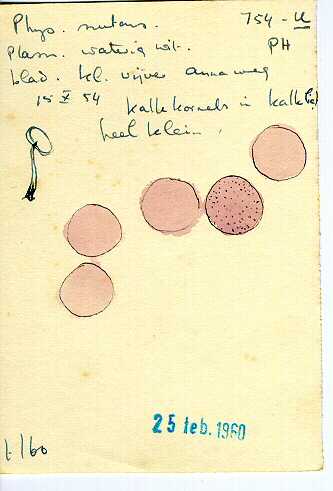 Phys. nutans. 754-U
Plasm. waterig wit. PH
blad. kl. vijver annaweg
15 X 54 kalkkorrels in kalk
heel klein,
25 feb. 1960
1/60